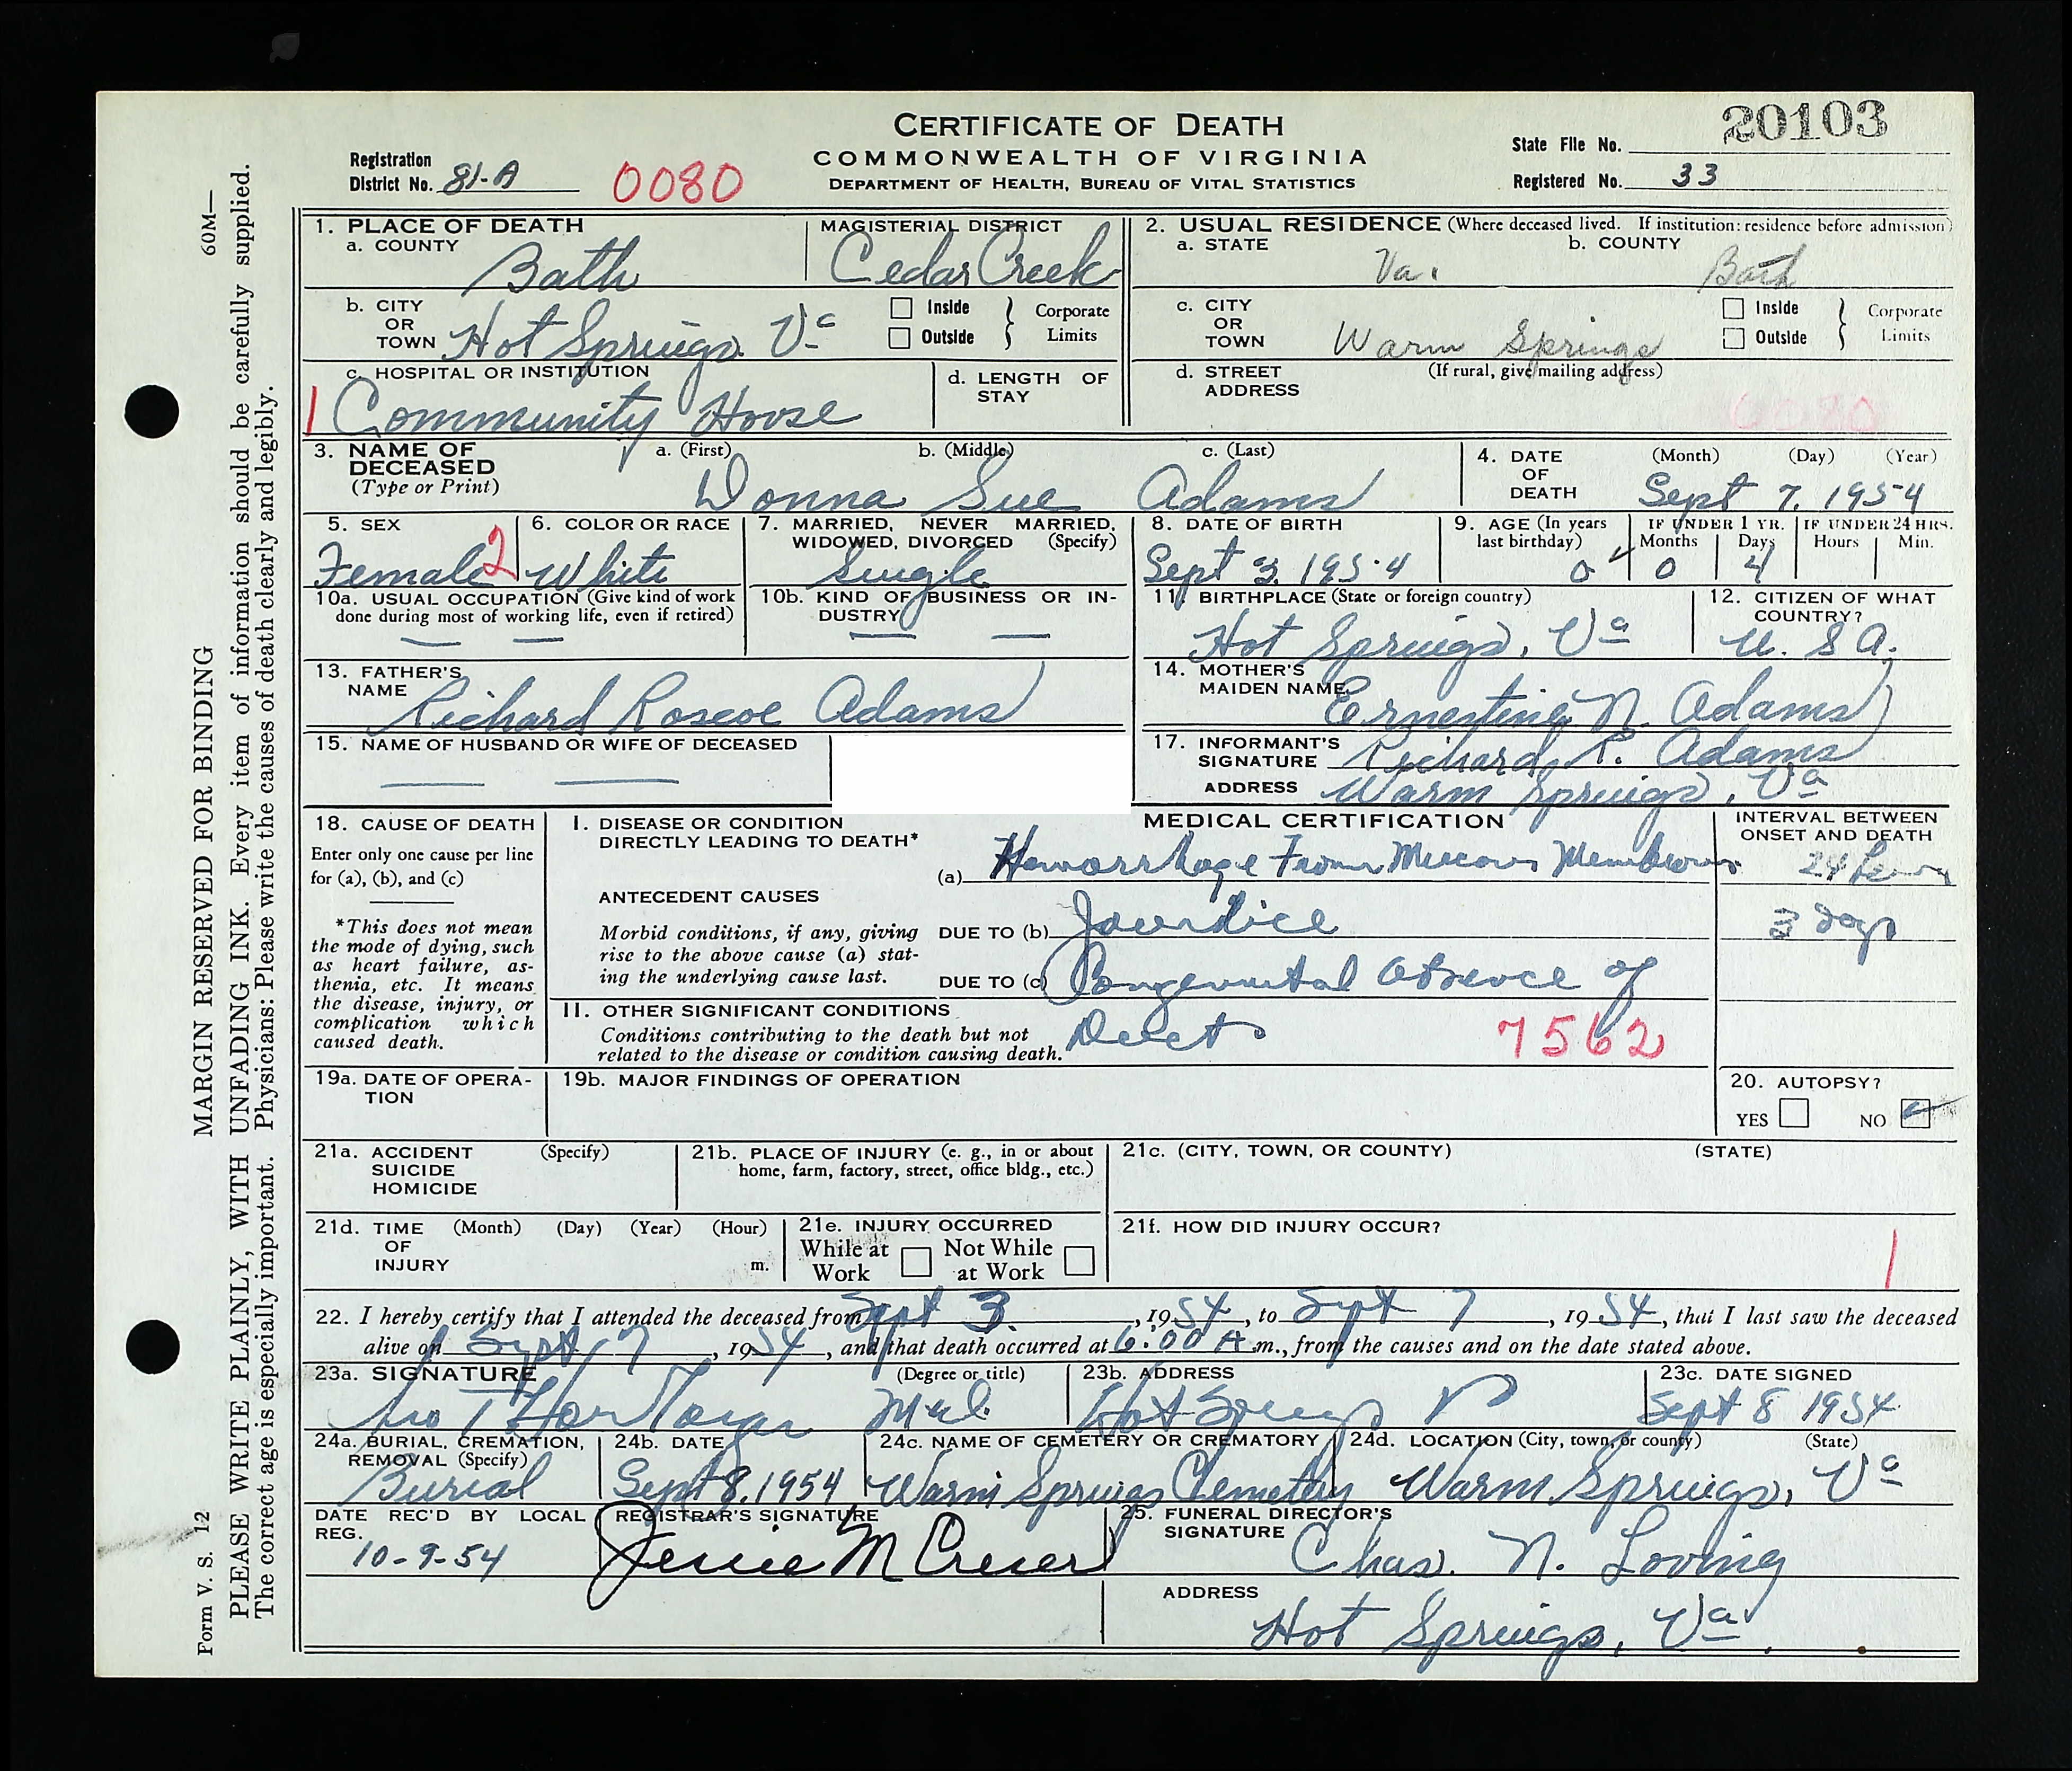 CERTIFICATE OF DEATH
COMMONWEALTH OF VIRGINIA
DEPARTMENT OF HEALTH, BUREAU OF VITAL STATISTICS
Registration District No. 81-A
0080
State File No. 20103
Registered No. 33
1. PLACE OF DEATH
a. COUNTY Bath
MAGISTERIAL DISTRICT Cedar Creek
b. CITY OR TOWN Hot Springs Va
Inside Outside Corporate Limits
c. HOSPITAL OR INSTITUTION
1 Community House
d. LENGTH OF STAY
2. USUAL RESIDENCE (Where deceased lived. If institution: residence before admission)
a. STATE Va.
b. COUNTY Bath
c. CITY OR TOWN Warm Springs
Inside Outside Corporate Limits
d. STREET ADDRESS (If rural, give mailing address)
0080
3. NAME OF DECEASED (Type or Print)
a. (First) b. (Middle) c. (Last)
Donna Sue Adams
4. DATE OF DEATH (Month) (Day) (Year)
Sept 7, 1954
5. SEX
Female 2
6. COLOR OR RACE
White
7. MARRIED, NEVER MARRIED, WIDOWED, DIVORCED (Specify)
Single
8. DATE OF BIRTH
Sept 3, 1954
9. AGE (In years last birthday) 0
IF UNDER 1 YR. Months 0 Days 4
IF UNDER 24 HRS. Hours Min.
10a. USUAL OCCUPATION (Give kind of work done during most of working life, even if retired)
— —
10b. KIND OF BUSINESS OR INDUSTRY
— —
11. BIRTHPLACE (State or foreign country)
Hot Springs, Va
12. CITIZEN OF WHAT COUNTRY?
U. S A.
13. FATHER'S NAME Richard Roscoe Adams
14. MOTHER'S MAIDEN NAME Ernestine N. Adams
15. NAME OF HUSBAND OR WIFE OF DECEASED
— —
17. INFORMANT'S SIGNATURE Richard R. Adams
ADDRESS Warm Springs, Va
MEDICAL CERTIFICATION
18. CAUSE OF DEATH
Enter only one cause per line for (a), (b), and (c)
*This does not mean the mode of dying, such as heart failure, asthenia, etc. It means the disease, injury, or complication which caused death.
I. DISEASE OR CONDITION DIRECTLY LEADING TO DEATH*
(a) Hemorrhage From Mucous Membrons
INTERVAL BETWEEN ONSET AND DEATH
24
ANTECEDENT CAUSES
Morbid conditions, if any, giving rise to the above cause (a) stating the underlying cause last.
DUE TO (b) Jaundice
3 days
DUE TO (c) Congenital Absence of
Ducts
7562
II. OTHER SIGNIFICANT CONDITIONS
Conditions contributing to the death but not related to the disease or condition causing death.
19a. DATE OF OPERATION
19b. MAJOR FINDINGS OF OPERATION
20. AUTOPSY?
YES NO ✓
21a. ACCIDENT SUICIDE HOMICIDE (Specify)
21b. PLACE OF INJURY (e. g., in or about home, farm, factory, street, office bldg., etc.)
21c. (CITY, TOWN, OR COUNTY) (STATE)
21d. TIME OF INJURY (Month) (Day) (Year) (Hour) m.
21e. INJURY OCCURRED
While at Work Not While at Work
21f. HOW DID INJURY OCCUR?
1
22. I hereby certify that I attended the deceased from Sept 3, 1954, to Sept 7, 1954, that I last saw the deceased
alive on Sept 7, 1954, and that death occurred at 6:00 A m., from the causes and on the date stated above.
23a. SIGNATURE (Degree or title)
M.d.
23b. ADDRESS
Hot Springs V
23c. DATE SIGNED
Sept 8 1954
24a. BURIAL, CREMATION, REMOVAL (Specify)
Burial
24b. DATE
Sept 8, 1954
24c. NAME OF CEMETERY OR CREMATORY
Warm Springs Cemetery
24d. LOCATION (City, town, or county) (State)
Warm Springs, Va
DATE REC'D BY LOCAL REG.
10-9-54
REGISTRAR'S SIGNATURE
Jessie M
25. FUNERAL DIRECTOR'S SIGNATURE
Chas. N. Loving
ADDRESS
Hot Springs, Va.
Form V. S. 12
60M—
MARGIN RESERVED FOR BINDING
PLEASE WRITE PLAINLY, WITH UNFADING INK. Every item of information should be carefully supplied.
The correct age is especially important. Physicians: Please write the causes of death clearly and legibly.